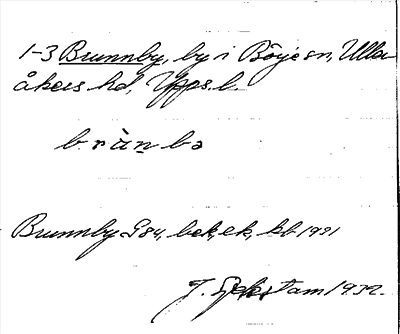 1-3 Brunnby, by i Börje sn, Uller-
åkers hd, Upps. l.
brùnbə
Brunnby S 84, bek, ek, kb 1931
J. Ejkstam 1932.